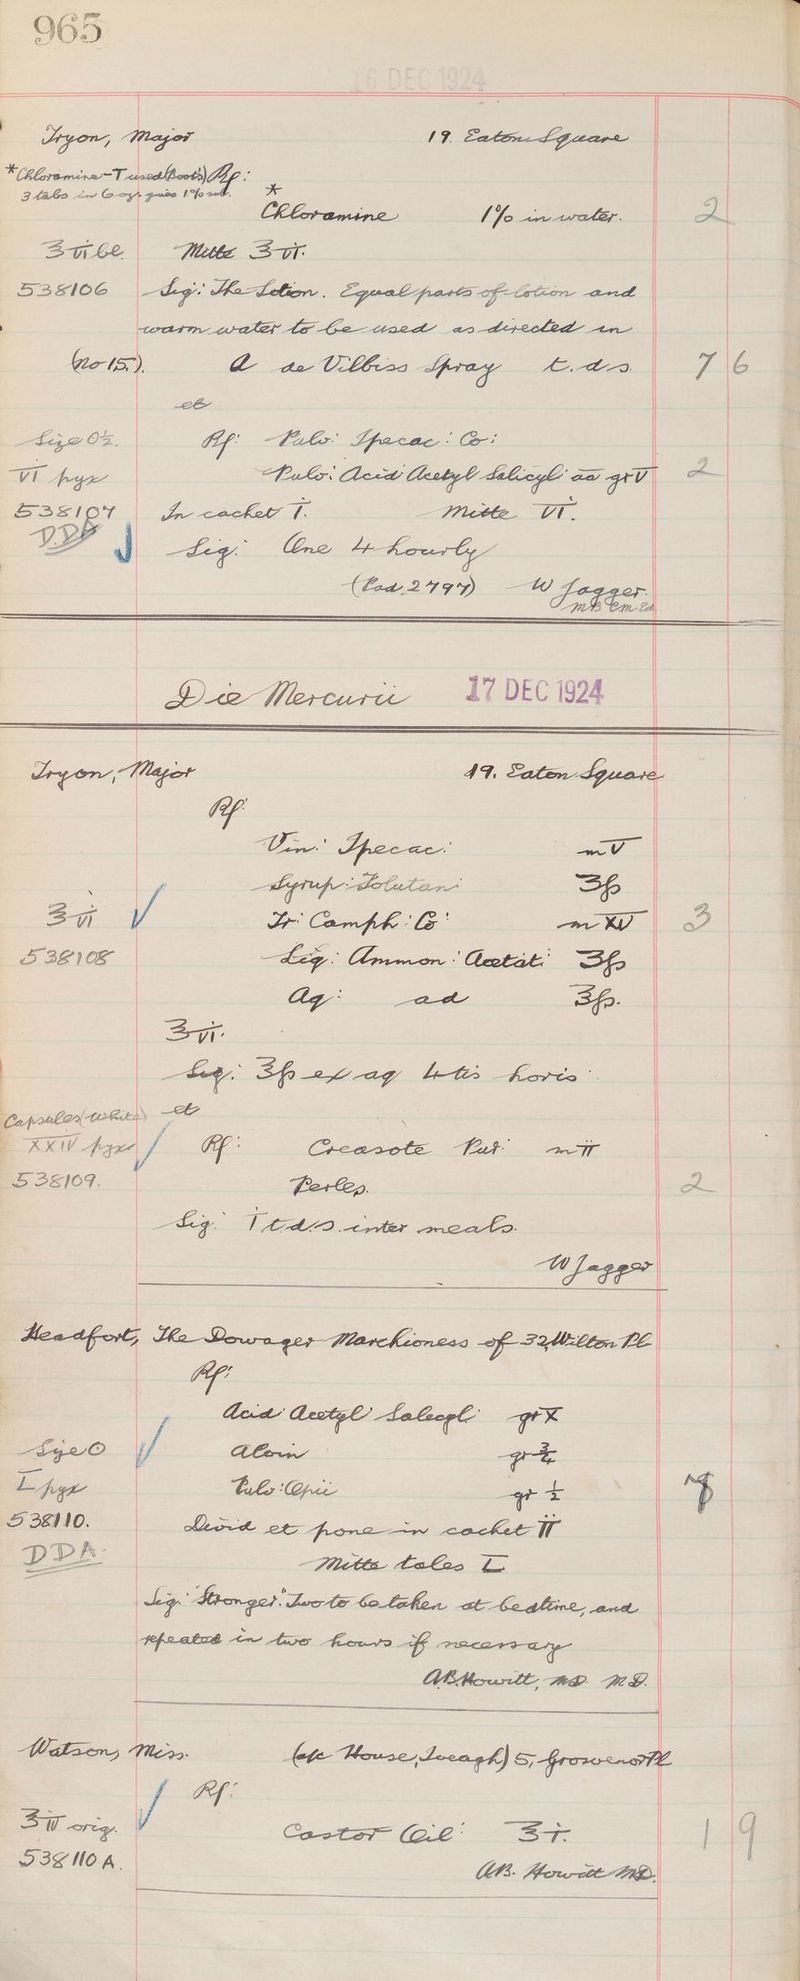 965
16 DEC 1924
Tryon, Major 19. Eaton Square
*Chloramine-T used (Boots) Rp:
3 tabs in 6 oz. gives 1% sol.
*
Chloramine 1% in water. 2
℥vi bl. Mitte ℥vi.
538106 Sig: The Lotion. Equal parts of lotion and
warm water to be used as directed in
(No 15.) A de Vilbiss Spray t.d.s. 7 6
et
Size 0½. Rp: Pulv: Ipecac: Co:
VI pyx Pulv: Acid Acetyl Salicyl: aa gr V 2
538107 In cachet i. Mitte VI.
D.D.A Sig: One 4 hourly
(Pad. 2797) W Jagger.
MB CM Ed
Die Mercurii 17 DEC 1924
Tryon, Major 19. Eaton Square
Rp:
Vin: Ipecac: m V
Syrup: Tolutan: ʒfs
℥vi Tr: Camph: Co: m XV 3
538108 Liq: Ammon: Acetat: ʒfs
Aq: ad ℥fs.
℥vi.
Sig: ℥fs ex aq 4tis horis
Capsules (White) et
XXIV pyx Rp: Creasote Pur: m ii
538109. Perles. 2
Sig: i t.d.s. inter meals.
W Jagger
Headfort, The Dowager Marchioness of 32, Wilton Pl
Rp:
Acid: Acetyl Salicyl: gr X
Size 0 Aloin gr ¾
L pyx Pulv: Opii gr ½ 7
538110. Divid et pone in cachet ii
DDA. Mitte tales L
Sig: "Stronger". Two to be taken at bedtime, and
repeated in two hours if necessary
A.B. Howitt, MD. M.D.
Watson, Miss. (c/o House, Iveagh) 5, Grosvenor Pl
Rp:
℥iv orig. Castor Oil: ℥i. 1 9
538110A. A.B. Howitt M.D.